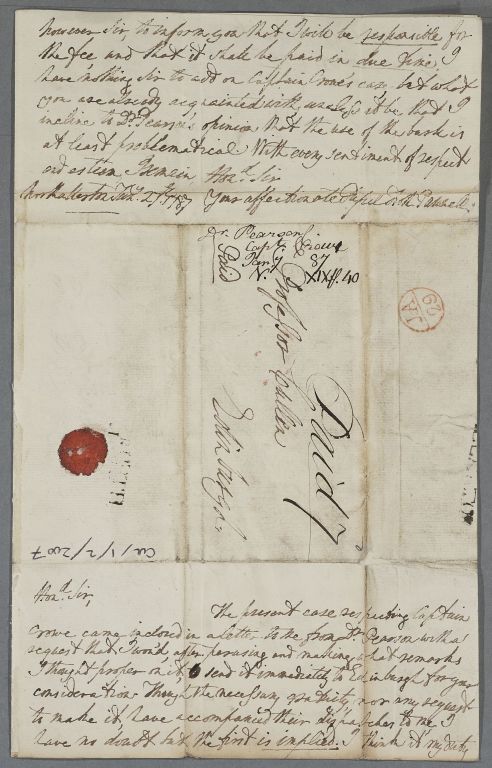 however Sir to inform you that I will be responsible for
the fee and that it shall be paid in due time, I
have nothing Sir to add on Captain Crowe's case but what
you are already acquainted with, unless it be that I
incline to Dr. Pearson's opinion that the use of the bark is
at least problematical With every sentiment of respect
and esteem I remain Hond. Sir
Your affectionate Pupil
Dr. Pearson
Capt. Crowe
Jany 87
Paid
V. XIX ff. 40
Professor Cullen
Edinburgh
Paid 7
JA 29
Cul/1/2/2007
Hond. Sir,
The present case respecting Captain
Crowe came inclosed in a letter to me from Dr. Pearson with a
request that I wou'd, after perusing and making what remarks
I thought proper on it, send it immediately to Edinburgh for your
consideration. Though the necessary gratuity, nor any request
to make it, have accompanied their dispatches to me I
have no doubt but the first is implied. I think it my duty